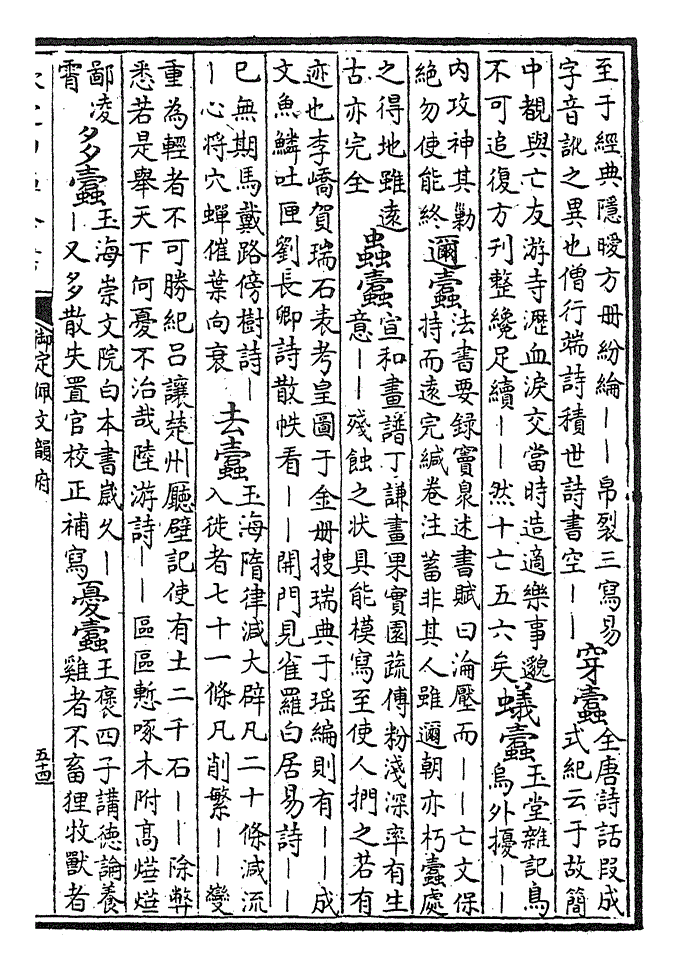 至于經典隱曖方册紛綸——帛裂三寫易
字音訛之異也僧行端詩積世詩書空——
穿蠹
全唐詩話段成
式紀云于故簡
中覩與亡友游寺瀝血淚交當時造適樂事邈
不可追復方刊整纔足續——然十亡五六矣
蟻蠹
玉堂雜記鳥
鳥外擾——
内攻神其勦
絶勿使能終
邇蠹
法書要録竇臮述書賦曰淪壓而——亡文保
持而遠完緘卷注蓄非其人雖邇朝亦朽蠹處
之得地雖遠
古亦完全
蟲蠹
宣和畫譜丁謙畫果實園蔬傅粉淺深率有生
意——殘蝕之状具能模寫至使人捫之若有
迹也李嶠賀瑞石表考皇圖于金册捜瑞典于瑶編則有——成
文魚鱗吐匣劉長卿詩散帙看——開門見雀羅白居易詩——
已無期馬戴路傍樹詩—
—心將穴蟬催葉向衰
去蠹
玉海隋律減大辟凡二十條減流
入徒者七十一條凡削繁——變
重為輕者不可勝紀吕讓楚州廳壁記使有土二千石——除弊
悉若是舉天下何憂不治哉陸游詩——區區慙啄木附髙爓爓
鄙凌
霄
多蠹
玉海崇文院白本書嵗久—
—又多散失置官校正補寫
憂蠹
王褒四子講徳論養
雞者不畜狸牧獸者
御定佩文韻府
五十四